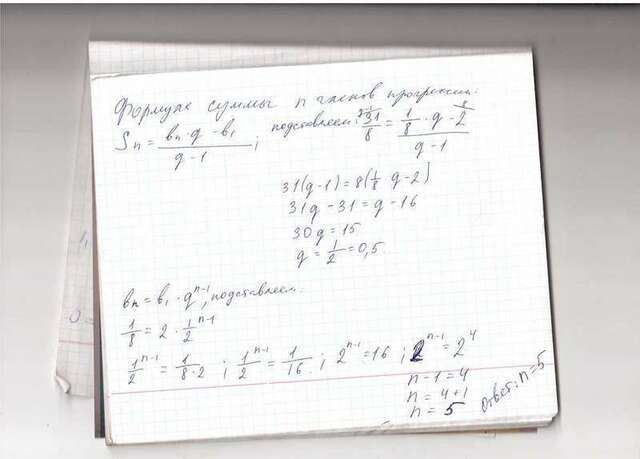 Формула суммы n членов прогрессии:
Sn = (bn · q - b1)/(q - 1); подставляем: 31/8 = (1/8 · q - 2)/(q - 1)
31(q-1) = 8(1/8 q - 2)
31q - 31 = q - 16
30q = 15
q = 1/2 = 0,5.
bn = b1 · q^(n-1), подставляем:
1/8 = 2 · 1/2^(n-1)
1/2^(n-1) = 1/(8·2) ; 1/2^(n-1) = 1/16 ; 2^(n-1) = 16 ; 2^(n-1) = 2^4
n - 1 = 4
n = 4+1
n = 5
Ответ: n=5